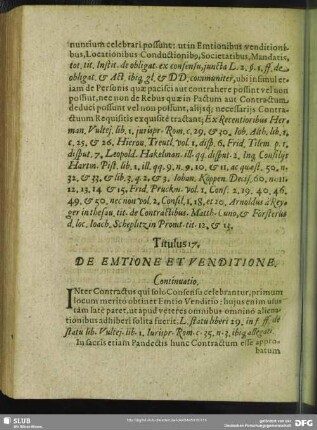 nunciùm celebrari possunt: ut in Emtionibus venditioni-
bus, Locationibus Conductionibᵒ, Societatibus, Mandatis,
tot. tit. Instit. de obligat. ex consensu, juncta L. 2. §. 1. ff. de
obligat. & Act. ibiq; gl. & DD. communiter, ubi insimul et-
iam de Personis quæ pacisci aut contrahere possint vel non
possint, nec non de Rebus quæ in Pactum aut Contractum
deduci possunt vel non possunt, alijsq; necessarijs Contra-
ctuum Requisitis exquisitè tractatur. Ex Recentioribus Her-
man. Vultej. lib. 1. jurispr. Rom. c. 29. & 30. Joh. Alth. lib. 1.
c. 25. & 26. Hieron. Treutl. vol. 1. disp. 6. Frid. Tilem. p. 1.
disput. 7. Leopold. Hakelman. ill. qq. disput. 2. Inq; Consilijs
Hartm. Pist. lib. 1. ill. qq. 9. n. 9. 10. & 11. ac quæst. 50. n.
32. & 33. & lib. 3. q. 2. & 3. Johan. Köppen. Decis. 60. n. 11.
12. 13. 14 & 15. Frid. Pruckm. vol. 1. Cons. 2. 19. 40. 46.
49. & 50. nec non vol. 2. Consil. 1. 18. et 20. Arnoldus à Rey-
ger in thesau. tit. de Contractibus. Matth. Cuno, & Försterus
d. loc. Joach. Scheplitz in Promt. tit. 12. & 13.
Titulus 17.
DE EMTIONE ET VENDITIONE.
Continuatio.
INter Contractus qui solo Consensu celebrantur, primum
locum meritò obtinet Emtio Venditio; hujus enim usus
tàm latè patet, ut apud veteres omnibus omninò aliena-
tionibus adhiberi solita fuerit. L. statu liberi 29. in f. ff. de
statu lib. Vultej. lib. 1. Jurispr. Rom. c. 35. n. 3. ibiq; allegati.
In sacris etiam Pandectis hunc Contractum esse appro-
batum
SLUB
DFG